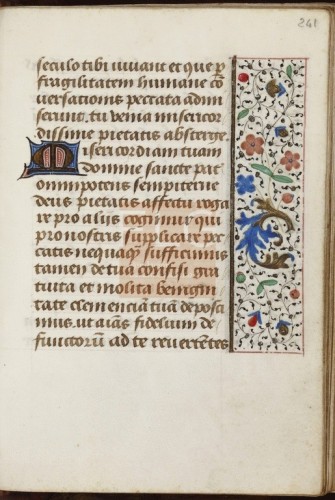 241
seculo tibi vivant et que p̲
fragilitatem humane cō
versationis peccata admi
serunt. tu venia misericor
dissime pietatis absterge.
Misericordiam tuam
domine sancte pat̄
omnipotens sempiterne
deus pietatis affectu roga
re pro alijs cogimur qui
pro nostris supplicare pec
catis nequaq̄ sufficimus
tamen de tua confisi gra
tuita et insolita benigni
tate clemenciā tuā deposci
mus. ut aīas fidelium de
functorū ad te revertētes